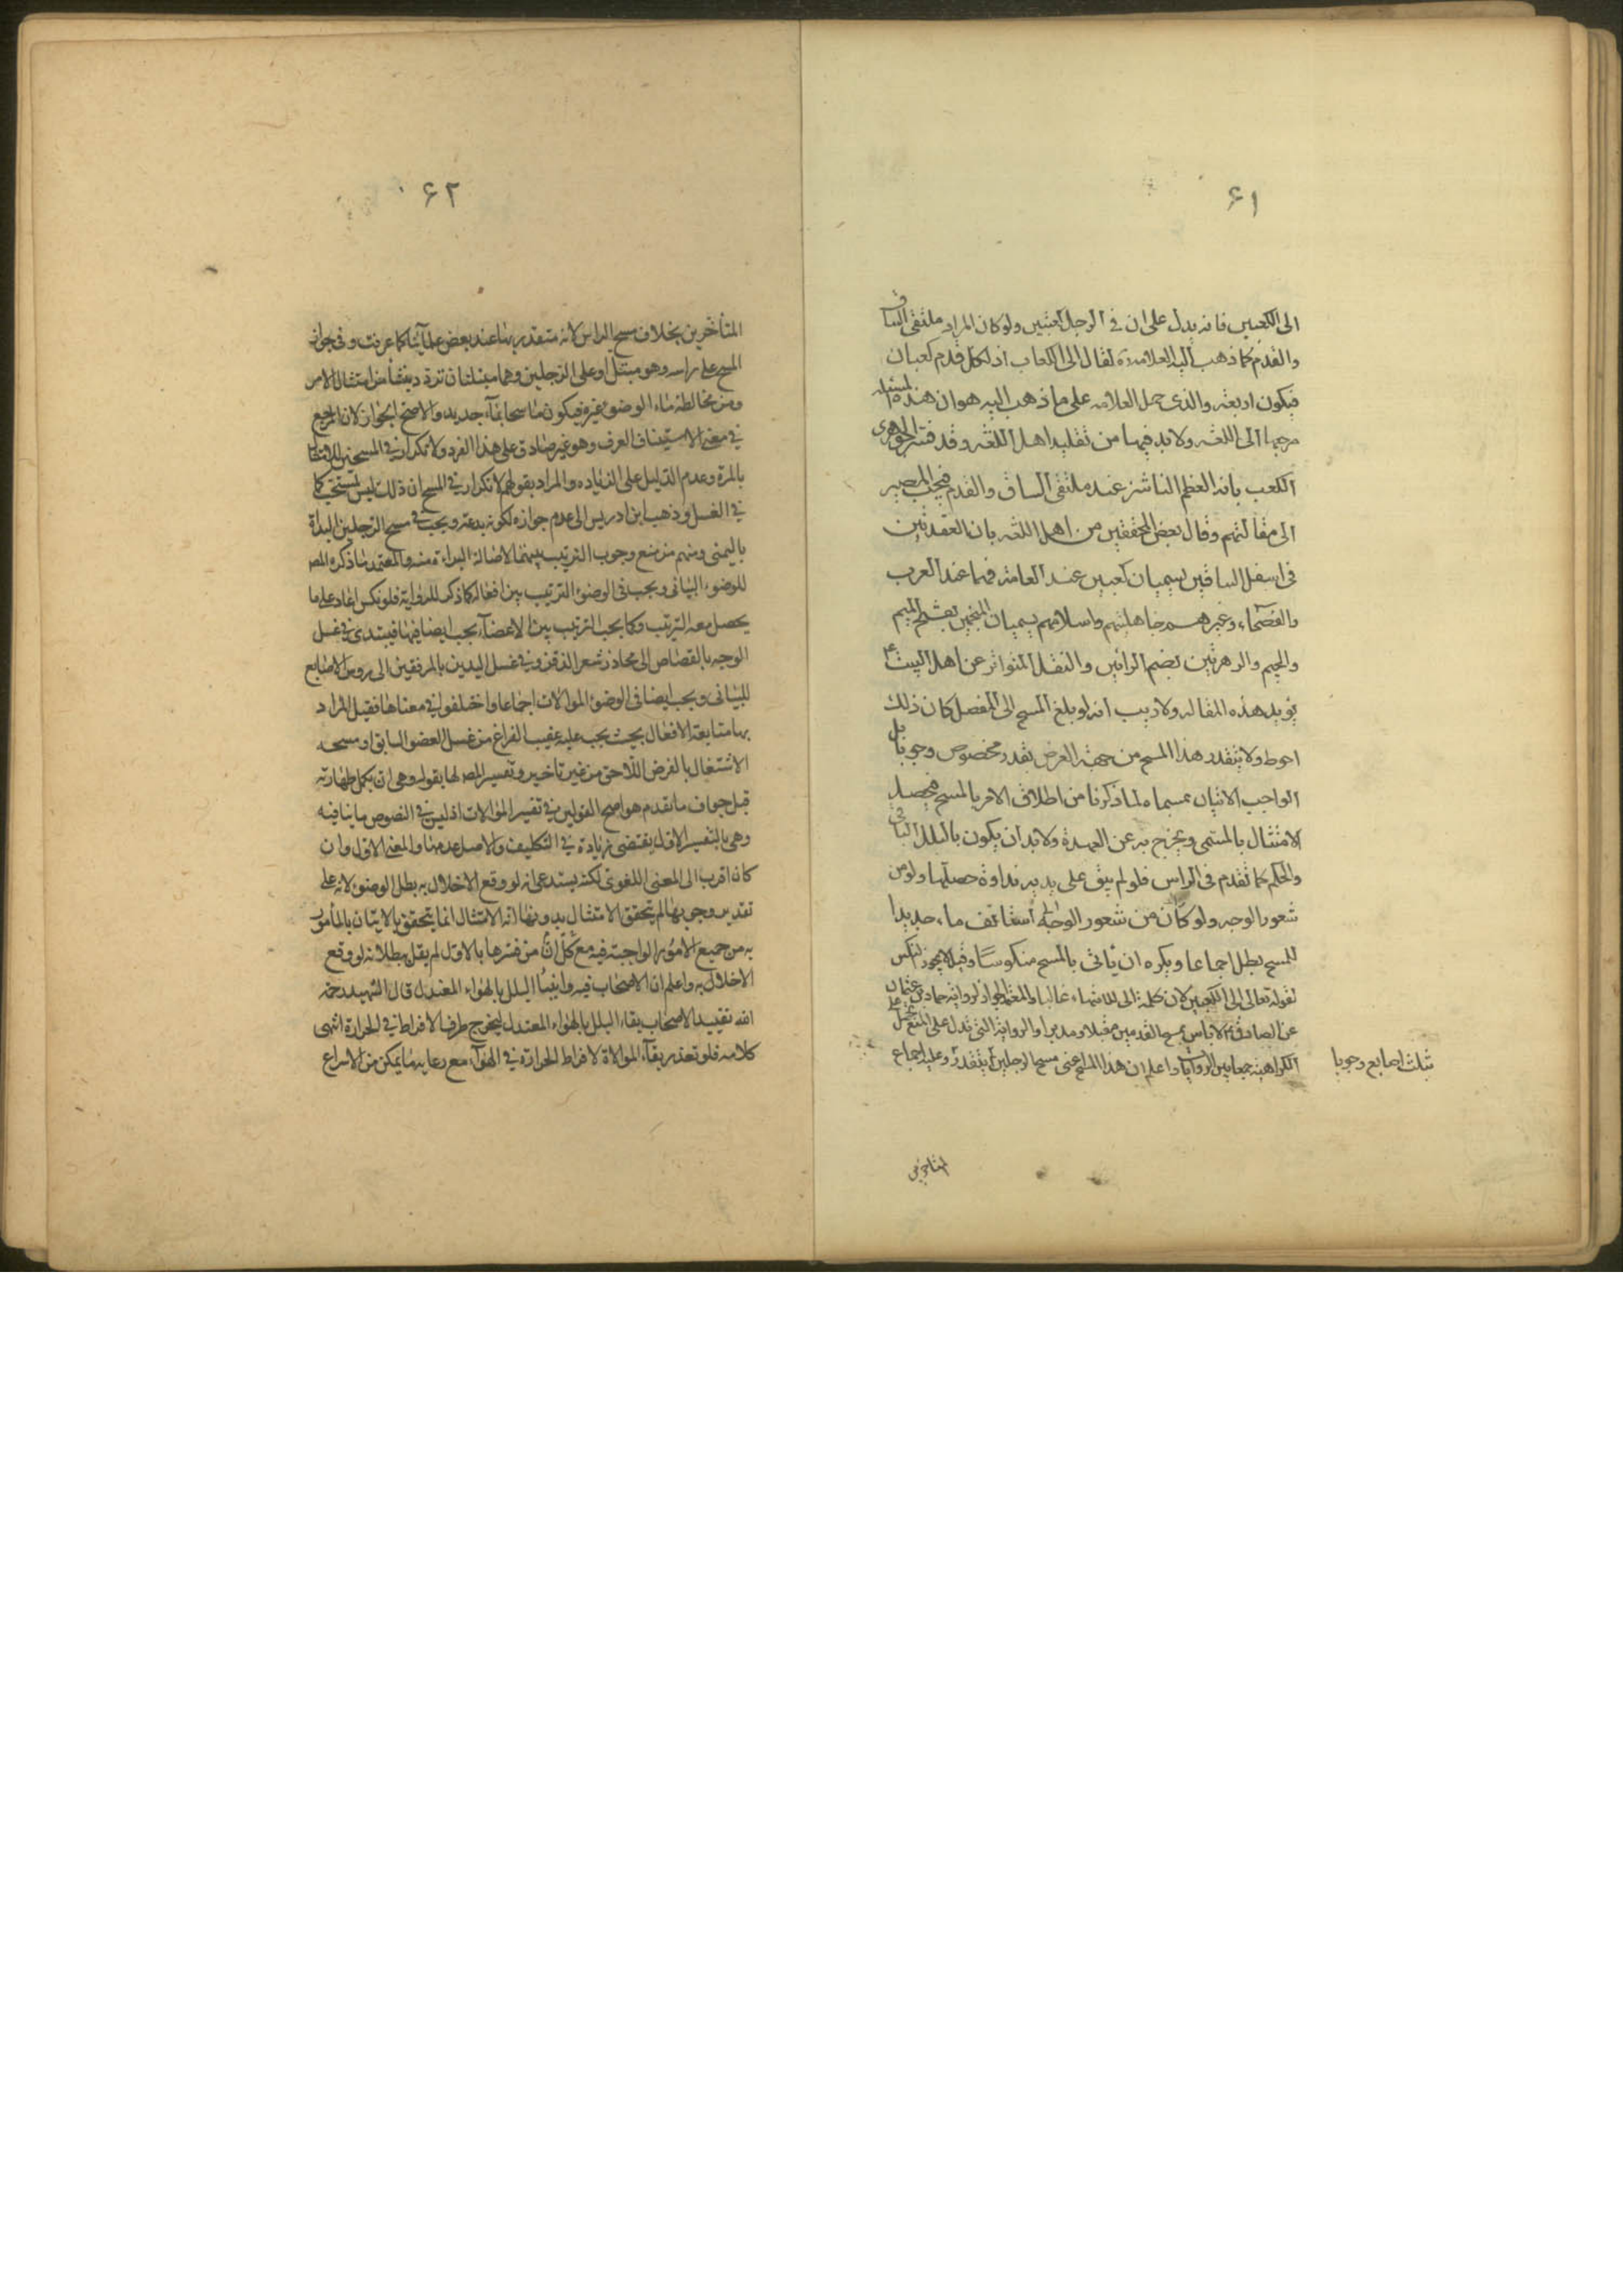 ۶۱
الى الكعبين فانه يدل على ان في الرجل كعبين ولو كان المراد ملتقى الساق
والقدم كما ذهب اليه العلامة ره لقال الى الكعاب اذ لكل قدم كعبان
فيكون اربعة والذى حمل العلامه على ما ذهب اليه هو ان هذه المسئله
مرجعها الى اللغه ولابد فيها من تقليد اهل اللغه وقد فسر الجوهرى
الكعب بانه العظم الناشز عند ملتقى الساق والقدم فيجب المصير
الى مقالتهم وقال بعض المحققين من اهل اللغه بان العقدتين
فى اسفل الساقين يسميان كعبين عند العامة فهما عند العرب
والفصحاء وغيرهم جاهليتهم واسلامهم يسميان المنجمين بفتح الميم
والجيم والرهرتين بضم الرائين والنقل المتواتر عن اهل البيت ع
يؤيد هذه المقاله ولا ريب انه لو بلغ المسح الى المفصل كان ذلك
احوط ولا يتقدر هذا المسح من جهة العرض بقدر مخصوص وجوبا بل
الواجب الاتيان بمسماه لما ذكرنا من اطلاق الامر بالمسح فيحصل
الامتثال بالمسمى ويخرج به عن العهدة ولابد ان يكون بالبلل الباقى
والحكم كما تقدم فى الراس فلو لم يبق على يديه نداوة حصلها ولو من
شعور الوجه ولو كان من شعور الوجه استانف ماء جديدا
للمسح بطل اجماعا ويكره ان ياتى بالمسح منكوسا وقيل لا يجوز النكس
لقوله تعالى الى الكعبين لان كلمة الى للانتهاء غالبا والمعتمد الجواز لرواية حماد بن عثمان
عن الصادق ع لا باس بمسح القدمين مقبلا ومدبرا والرواية التى تدل على المنع تحمل على
الكراهية جمعا بين الروايات واعلم ان هذا المسح اعنى مسح الرجلين لا يتقدر وعليه اجماع
بثلث اصابع وجوبا
المتاخرين
۶۲
المتأخرين بخلاف مسح الراس لانه متقدر بها عند بعض علمآئنا كما عرفت وفى جواز
المسح على راسه وهو مبتل او على الرجلين وهما مبتلتان تردد ينشأ من امتثال الامر
ومن مخالطة ماء الوضوء غيره فيكون ماسحا بمآء جديد والاصح الجواز لان المرجع
في معنى الاستيناف العرف وهو غير صادق على هذا الفرد ولا تكرار في المسحتين للاكتفاء
بالمرة وعدم الدليل على الزيادة والمراد بقولهم لا تكرار في المسح ان ذلك ليس بمستحب كما
في الغسل وذهب ابن ادريس الى عدم جوازه لكونه بدعة ويجب في مسح الرجلين البدأة
باليمنى ومنهم من منع وجوب الترتيب بينهما لاصالة البراءة منه والمعتمد ما ذكره المص
للوضوء البيانى ويجب فى الوضوء الترتيب بين افعاله كما ذكر للرواية فلو نكس اعاد على ما
يحصل معه الترتيب وكما يجب الترتيب بين الاعضآء يجب ايضا فيها فيبتدى في غسل
الوجه بالقصاص الى محاذر شعر الذقن وفي غسل اليدين بالمرفقين الى روس الاصابع
للبيانى ويجب ايضا فى الوضوء الموالات اجماعا واختلفوا في معناها فقيل المراد
بها متابعة الافعال بحيث يجب عليه عقيب الفراغ من غسل العضو السابق او مسحه
الاشتغال بالفرض اللاحق من غير تاخير وتفسير المص لها بقوله وهى ان يكمل طهارته
قبل جفاف ما تقدم هو اصح القولين في تفسير الموالات اذ ليس في النصوص ما ينافيه
وهى بالتفسير الاول يقتضى زيادة في التكليف والاصل عدمها والمعنى الاول وان
كان اقرب الى المعنى اللغوى لكنه يستدعى انه لو وقع الاخلال به بطل الوضوء لانه على
تقدير وجوبها لم يتحقق الامتثال بدونها اذ الامتثال انما يتحقق بالاتيان بالمأمور
به من جميع الامور الواجبة فيه مع كل ان من فسرها بالاول لم يقل ببطلانه لو وقع
الاخلال به واعلم ان الاصحاب قيدوا بقاء البلل بالهواء المعتدل قال الشهيد رحمه
الله تقييد الاصحاب بقاء البلل بالهواء المعتدل ليخرج طرف الافراط في الحرارة انتهى
كلامه فلو تعذر بقآء الموالاة لافراط الحرارة في الهوآء مع رعاية ما يمكن من الاسراع